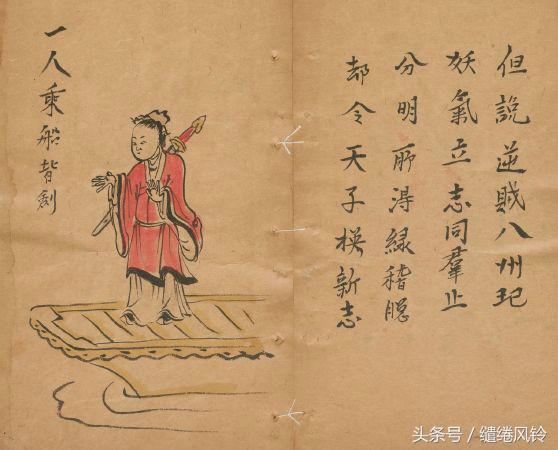 但說逆賊八州
妖氣立志同羣止
分明所得緑稽
都令天子新志
一人乘船背劍
头条号 / 缱绻风铃